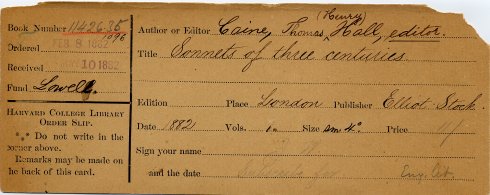 Book Number 11426.35
Ordered FEB 8 1882
Received MAY 10 1882
Fund Lowell.
HARVARD COLLEGE LIBRARY
ORDER SLIP.
Do not write in the
corner above.
Remarks may be made on
the back of this card.
(Henry)
Author or Editor Caine, Thomas ^ Hall, editor.
Title Sonnets of three centuries.
Edition Place London Publisher Elliot Stock.
Date 1882 Vols. Size sm 4°. Price
Sign your name
and the date